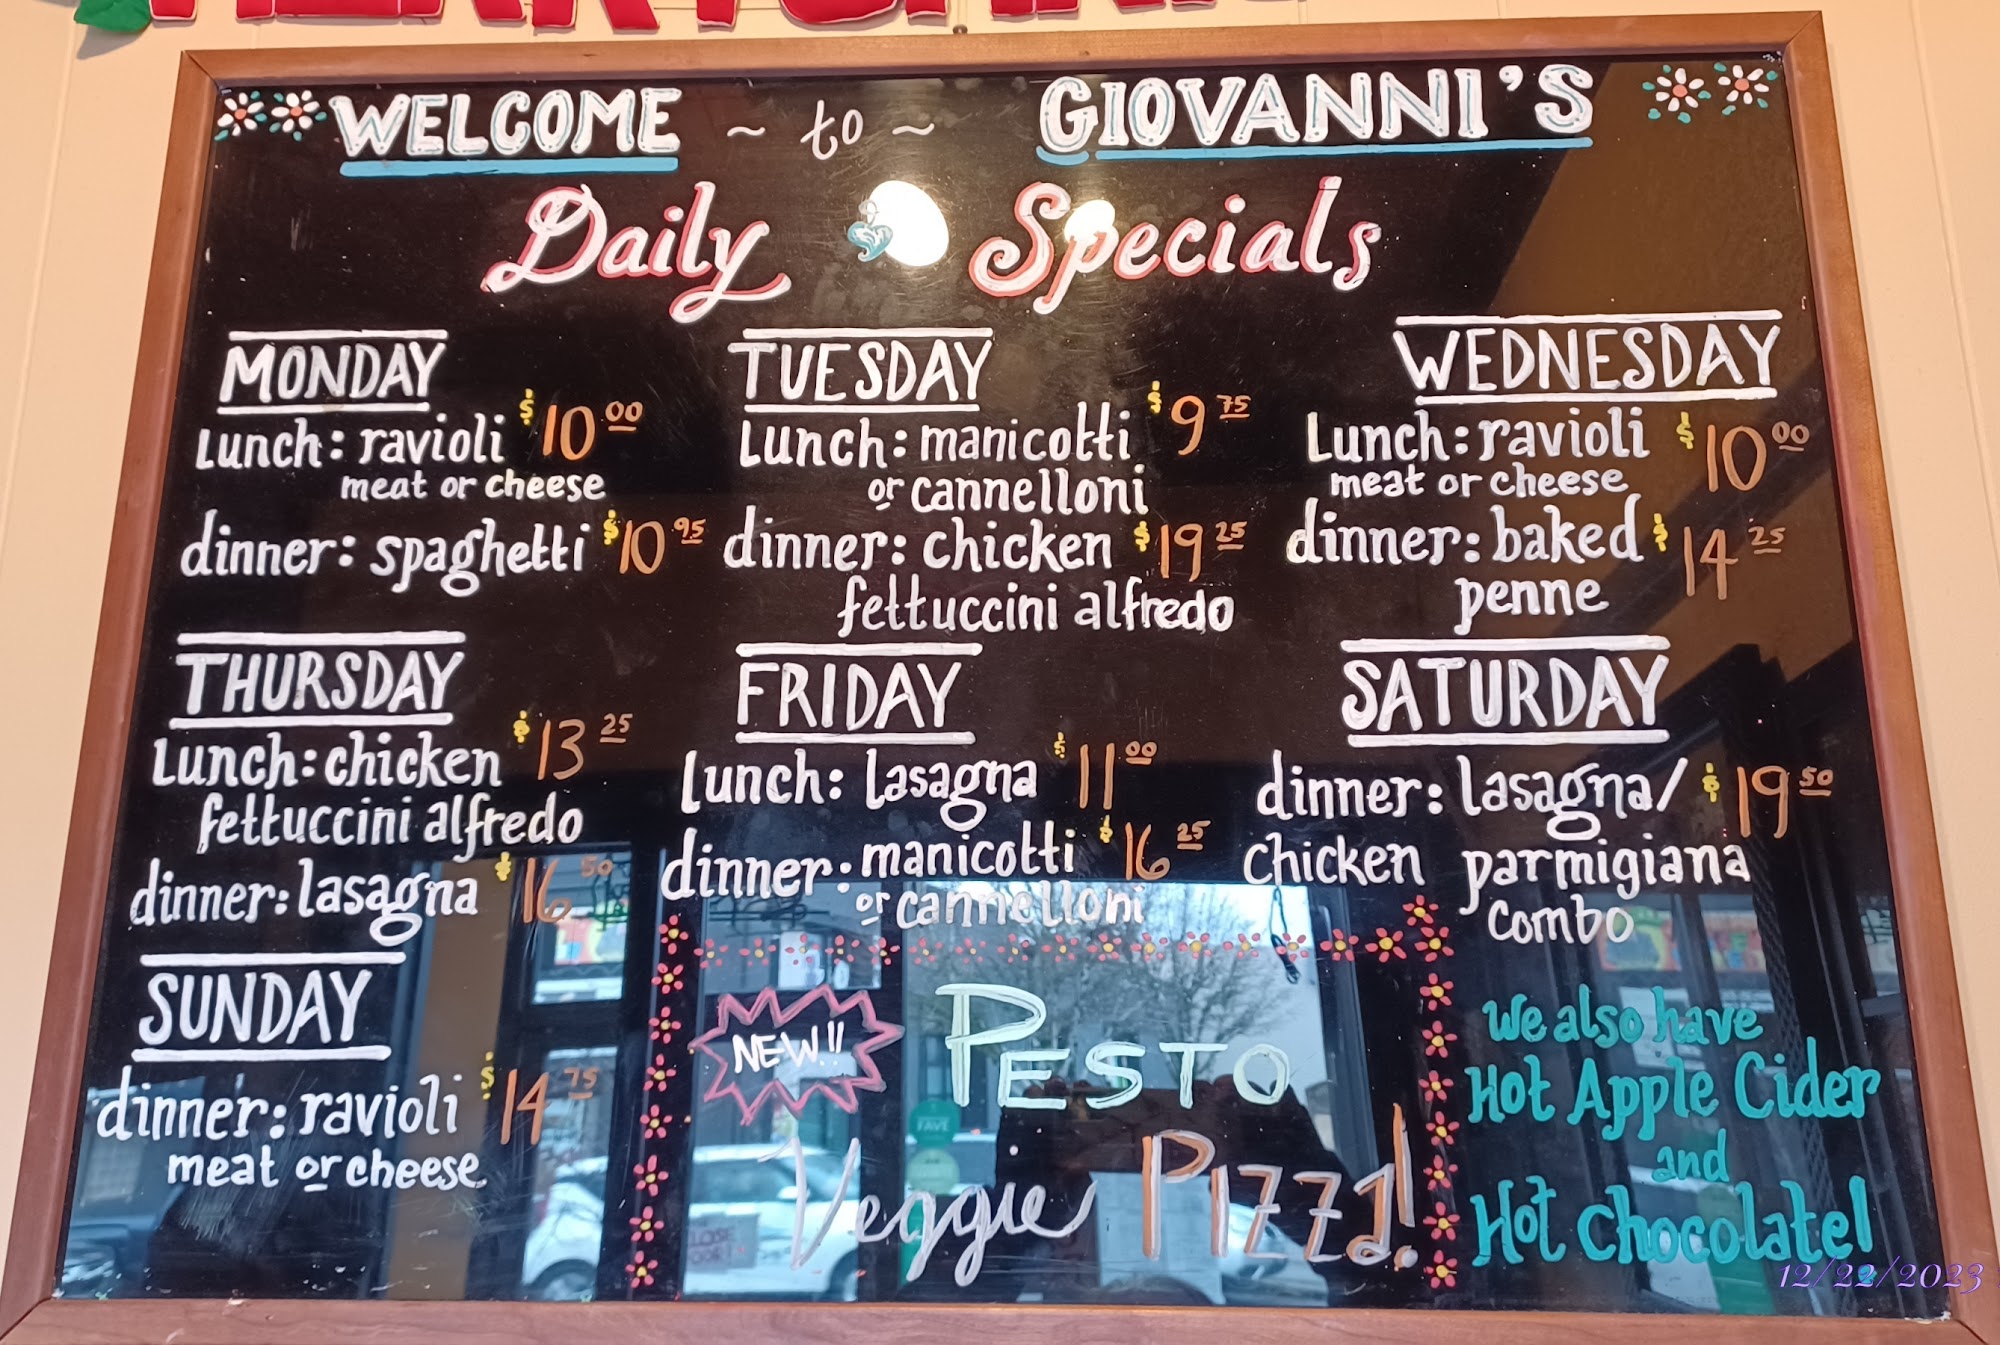 WELCOME ~ to ~ GIOVANNI'S
Daily Specials
MONDAY
Lunch: ravioli $10.00
meat or cheese
dinner: spaghetti $10.95
TUESDAY
Lunch: manicotti $9.75
or cannelloni
dinner: chicken $19.25
fettuccini alfredo
WEDNESDAY
Lunch: ravioli $10.00
meat or cheese
dinner: baked $14.25
penne
THURSDAY
Lunch: chicken $13.25
fettuccini alfredo
dinner: lasagna $16.50
FRIDAY
lunch: lasagna $11.00
dinner: manicotti $16.25
or cannelloni
SATURDAY
dinner: lasagna/ $19.50
chicken parmigiana
combo
SUNDAY
dinner: ravioli $14.75
meat or cheese
NEW!!
PESTO
Veggie PIZZA!
We also have
Hot Apple Cider
and
Hot Chocolate!
12/22/2023